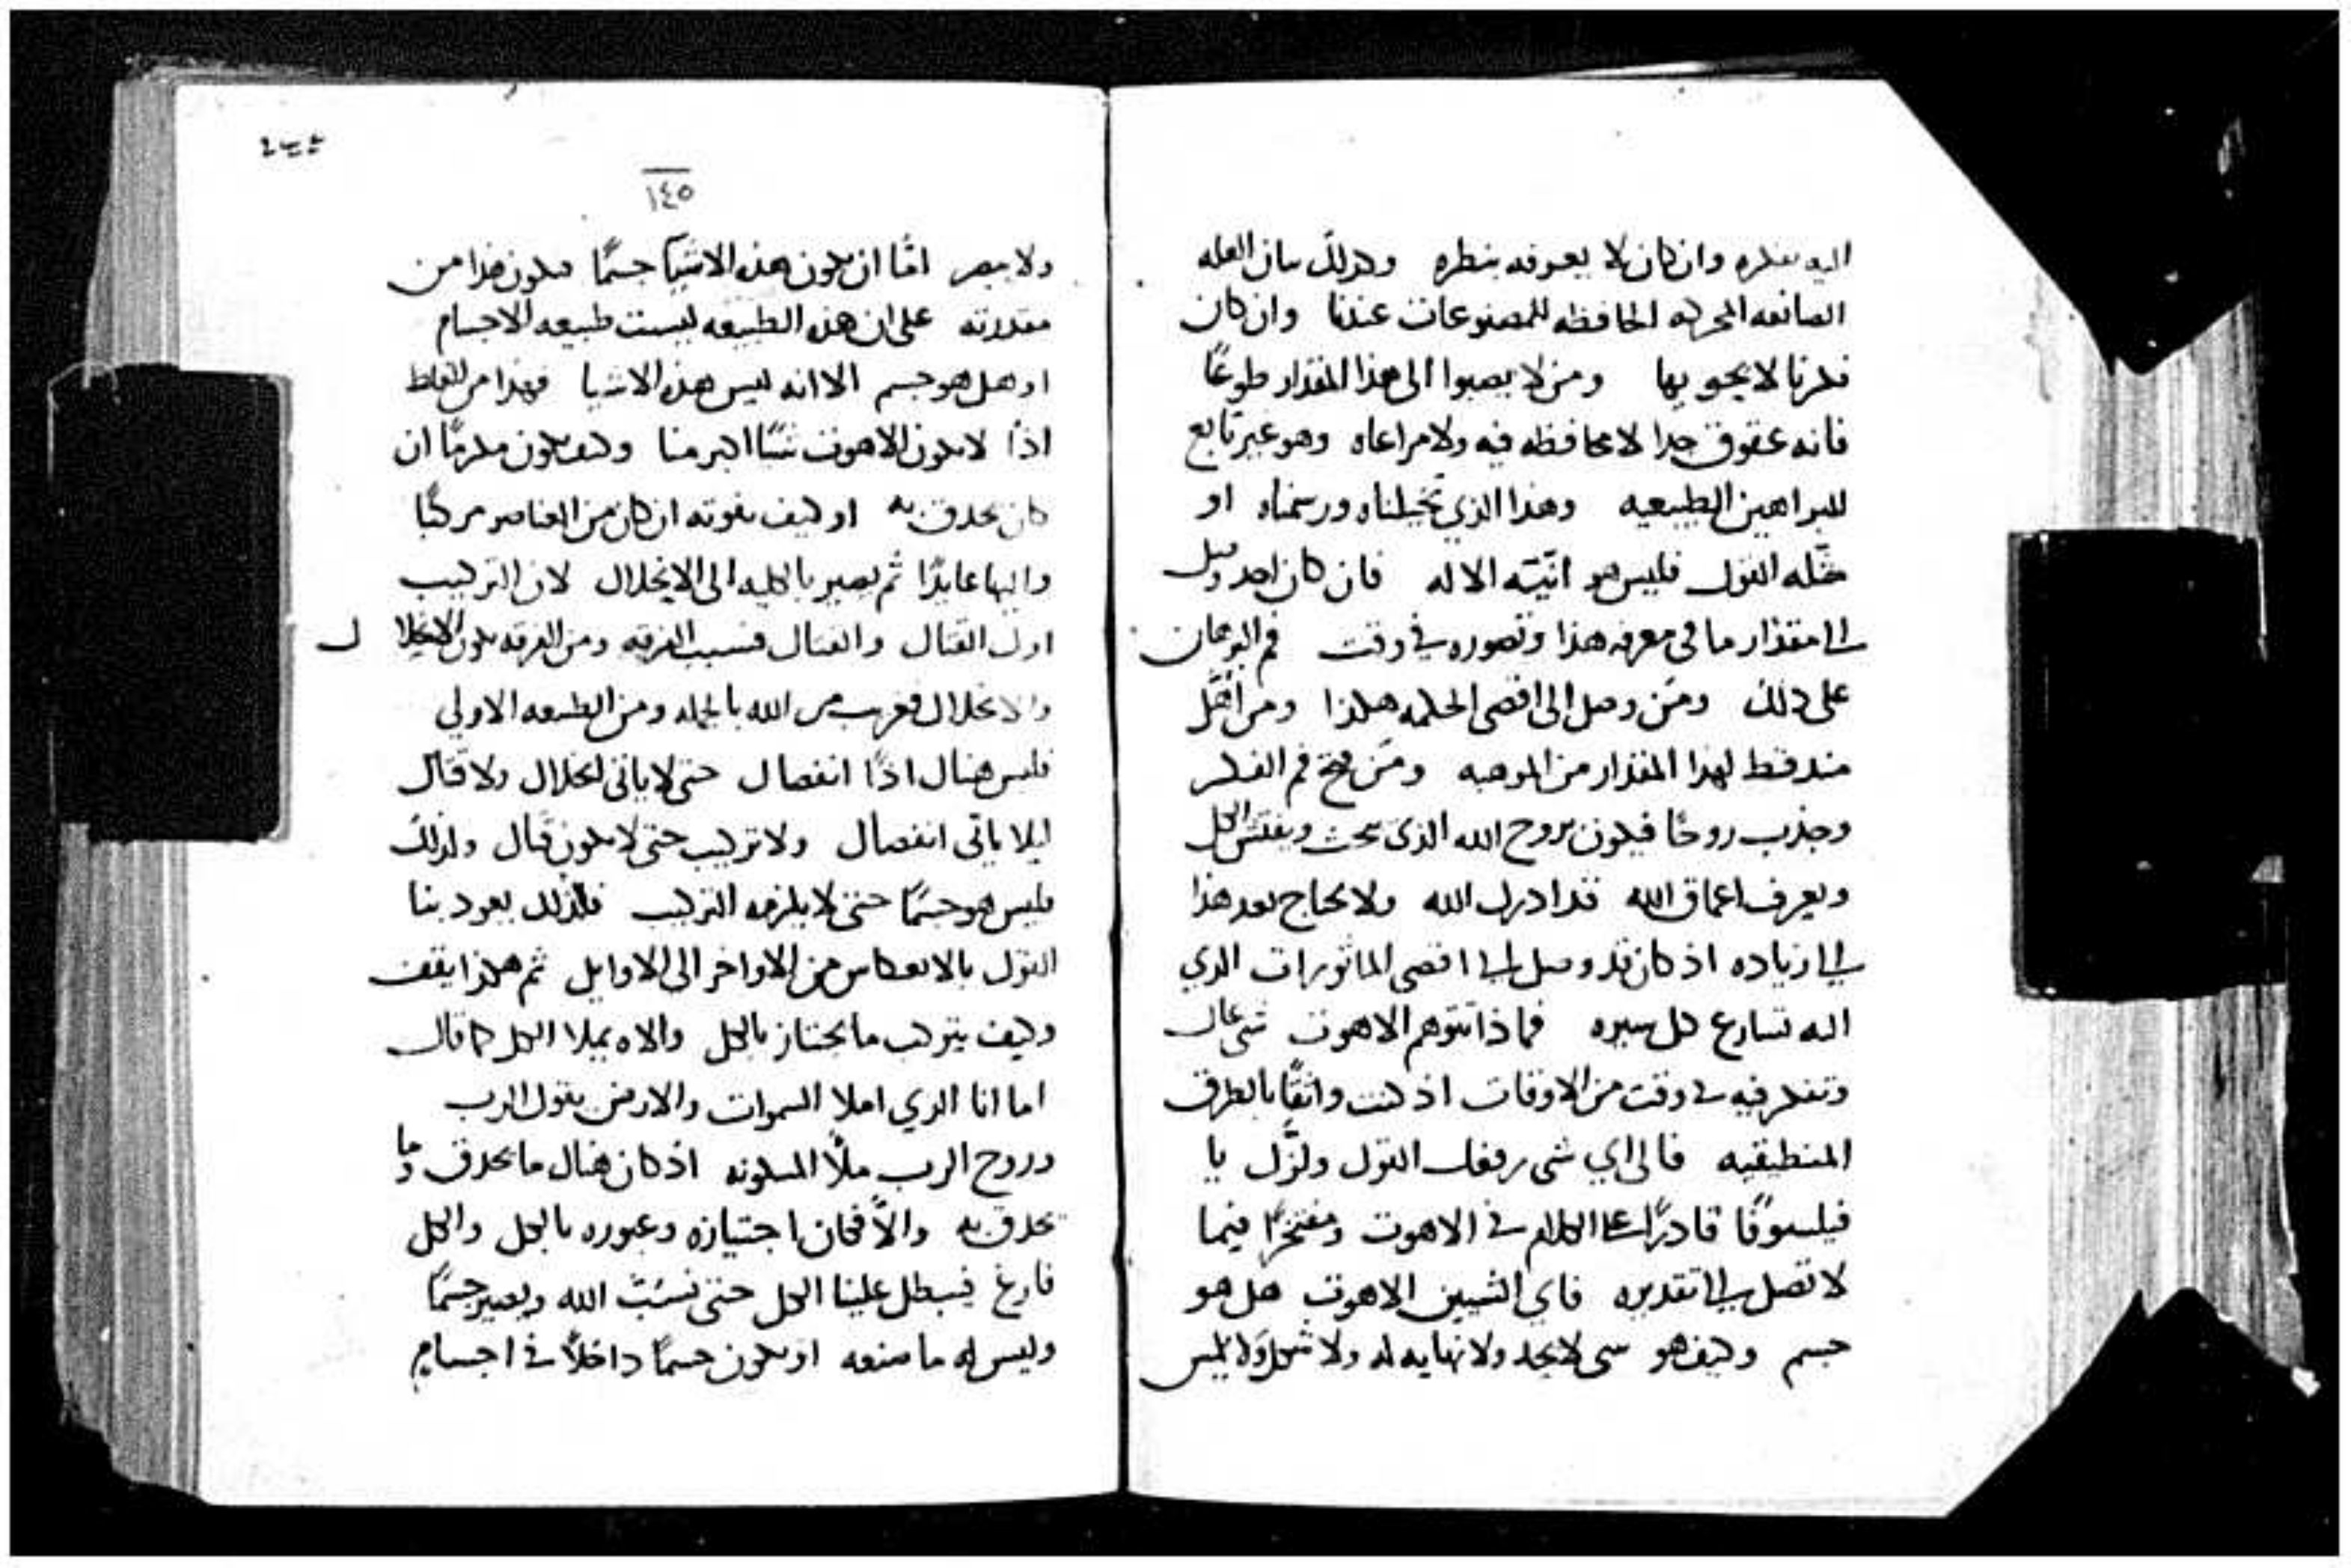 اليه بفكره وان كان لا يعرفه بنظره وكذلك بيان العله
الصانعه المحركه الحافظه للمصنوعات عندنا وان كان
فكرنا لا يحويها ومن لا يصبوا الى هذا المقدار طوعًا
فانه عقوق جدا لا محافظه فيه ولا مراعاه وهو غير تابع
للبراهين الطبيعيه وهذا الذي تخيلناه ورسمناه او
مثله القول فليس هو انيّة الاله فان كان احد وصل
الى مقدار ما في معرفه هذا وتصوره في وقت فم البرهان
على ذلك ومَن وصل الى اقصى الحكمه هكذا ومن اهّل
منذ قط لهذا المقدار من الموهبه ومَن فتح فم الفكر
وجذب روحًا فيكون بروح الله الذي يبحث ويفتش الكل
ويعرف اعماق الله قد ادرك الله ولا يحتاج بعد هذا
الى زياده اذ كان قد وصل الى اقصى الماثورات الذي
اليه تسارع كل سيره فماذا تتوهم الاهوت شي عال
وتفكر فيه في وقت من الاوقات اذ كنت واثقًا بالطرق
المنطيقيه فالى اي شي يرفعك القول ولنزل يا
فيلسوفًا قادرًا على الكلام في الاهوت ومفتخرًا فيما
لا تصل الى تقديره فاي الشيين الاهوت هل هو
جسم وكيف هو شي لا يحد ولا نهايه له ولا شكل ولا يلمس
١٤٥
ولا يبصر امّا ان يكون هذه الاشيا جسمًا فيكون هذا من
مقدرته على ان هذه الطبيعه ليست طبيعه الاجسام
او هل هو جسم الا انه ليس هذه الاشيا فهذا من الغلط
اذًا لا يكون الاهوت شيًا اكبر منا وكيف يكون مكرمًا ان
كان يحدق به او كيف يفوته ان كان من العناصر مركبًا
واليها عايدًا ثم يصير بالكليه الى الانحلال لان التركيب
اول القتال والقتال فسبب الفرقه ومن الفرقه يكون الانحلال
والانحلال فغريب من الله بالجمله ومن الطبيعه الاولي
فليس هناك اذًا انفصال حتى لا ياتى انحلال ولا قتال
ليلا ياتى انفصال ولا تركيب حتى لا يكون قتال ولذلك
فليس هو جسمًا حتى لا يلزمه التركيب فلذلك يعود بنا
القول بالانعكاس من الاواخر الى الاوايل ثم هكذا يقف
وكيف يتركب ما يجتاز بالكل والاه يملا الكل كما قال
اما انا الذي املا السموات والارض يقول الرب
وروح الرب ملأ المسكونه اذ كان هناك ما يحدق وما
يحدق به والاّ فكان اجتيازه وعبوره بالكل والكل
فارغ فيبطل علينا الكل حتى نسُبّ الله ويصير جسمًا
وليس له ما صنعه او يكون جسمًا داخلاً في اجسام